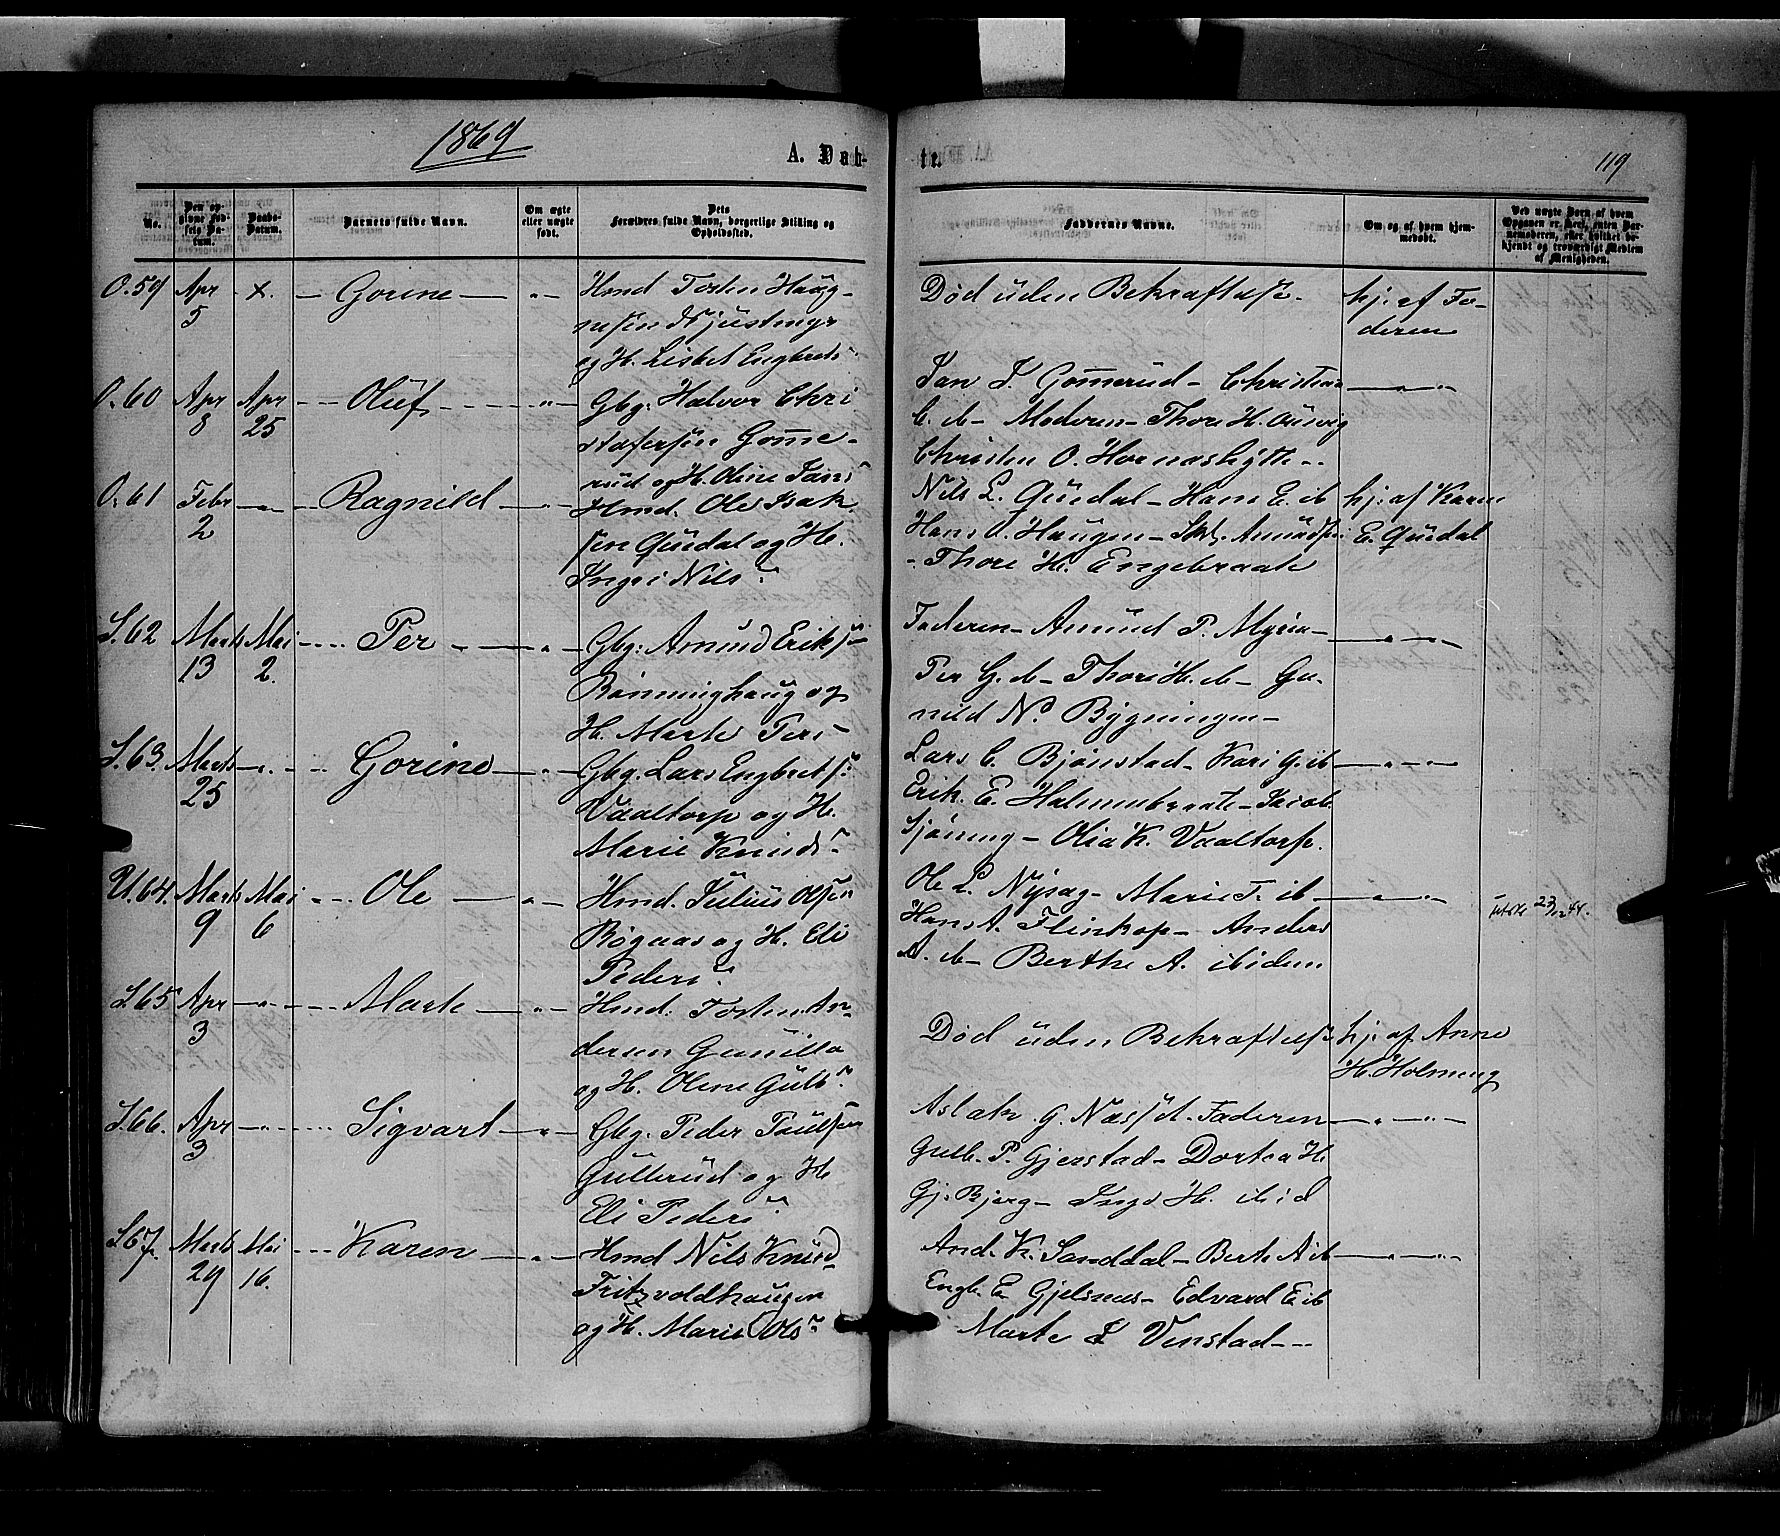 1869
A. Døb-
te.
119
No.
Den opgivne Fødsels Datum.
Daabs-Datum.
Barnets fulde Navn.
Om ægte eller uægte født.
Dets Forældres fulde Navn, borgerlige Stilling og Opholdssted.
Faddernes Navne.
Om og af hvem hjemmedøbt.
Ved uægte Børn af hvem Opgaven er skeet, enten Barnemoderen, eller hvilket bekjendt og troværdigt Medlem af Menigheden.
O. 59 Apr 5 x. — Gorine — " Hmd Tosten Haag-
og H. Lisbet Engbrets
Død uden Bekræftelse. hj. af Fa-
deren
O. 60 Apr 8 Apr 25 --- Oluf ---- " Gbg. Halvor Chri
stofersen Gome-
rud og H. Oline Jans
Jan J. Gomerud - Christian — " —
C. ib - Moderen - Thore H.
Christen O. Hornashytte --
O. 61 Febr 2 — " — Ragnild — " Hmd. Ole Isak
sen Quedal og H.
Ingri Nils.
Nils L. Quedal - Hans E. ib hj. af Karen
Hans O. Haugen - Amundsen E. Quedal
- Thore H. Engebraate
S. 62 Marts 13 Mai 2. ---- Per — " Gbg. Amund Eriks
Rønninghaug og
H. Marte Pers
Faderen - Amund P. Myrie - — " —
Per G. ib - Thore H. ib - Gu-
nild N. Bygningen -
S. 63. Marts 25 — " — Gorine — " Gbg. Lars Engbrets.
Vaaltorp og H.
Marie Knuds
Lars C. Bjønstad - Kari G. ib — " —
Erik. E. Halmenbraate - Jacob
Sjøning - Olia K. Vaaltorp.
U. 64. Marts 9 Mai 6 ---- Ole — " Hmd. Julius Olsen
Røgaas og H. Eli
Peders.
Ole L. Nysæg - Marie T. ib — " —
Hans A. Flinkop - Anders
A. ib - Berthe A. ibidem
23/12 44.
S. 65 Apr 3 — " — Marte — " Hmd. Tosten An-
dersen Gunilla
og H. Olene Gulb.
Død uden Bekræftelse hj. af Anne
H. Holmeng
S. 66. Apr 3 — " — Sigvart — " Gbg. Peder Paulsen
Gullerud og H
Eli Peders.
Aslak G. Næsset. Faderen — " —
Gulb. P. Gjerstad - Dortea H
Gj. Bjerg - Inge H. ibid
S. 67. Marts 29 Mai 16. --- Karen — " Hmd Nils Knud
Fritzvoldhaugen
og H. Marie Ols.
And. K. Sanddal - Berte A ib — " —
Engb. E Gjelsnes - Edvard E ib
Marte L Venstad --